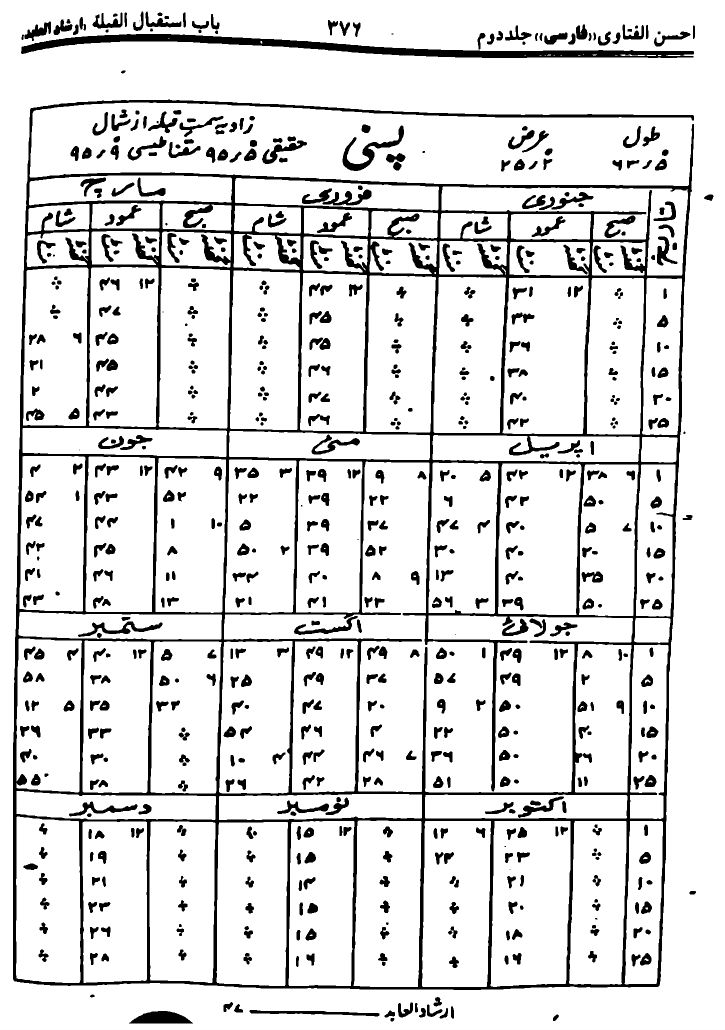 احسن الفتاوی «فارسی» جلد دوم ۳۷۶ باب استقبال القبلة «ارشاد العابد»
طول عرض پسنی زاویہ سمت قبلہ از شمال
۶۳٫۵ ۲۵٫۲ حقیقی ۹۵٫۵ مقناطیسی ۹۵٫۹
تاریخ جنوری فروری مارچ
صبح عمود شام صبح عمود شام صبح عمود شام
گھنٹہ منٹ گھنٹہ منٹ گھنٹہ منٹ گھنٹہ منٹ گھنٹہ منٹ گھنٹہ منٹ گھنٹہ منٹ گھنٹہ منٹ گھنٹہ منٹ
۱ ÷ ۱۲ ۳۱ ÷ ÷ ۱۲ ۴۴ ÷ ÷ ۱۲ ۴۶ ÷
۵ ÷ ۳۳ ÷ ÷ ۴۵ ÷ ÷ ۴۷ ÷
۱۰ ÷ ۳۶ ÷ ÷ ۴۵ ÷ ÷ ۴۵ ۶ ۲۸
۱۵ ÷ ۳۸ ÷ ÷ ۴۶ ÷ ÷ ۴۵ ۲۱
۲۰ ÷ ۴۰ ÷ ÷ ۴۷ ÷ ÷ ۴۴ ۲
۲۵ ÷ ۴۲ ÷ ÷ ۴۶ ÷ ÷ ۴۳ ۵ ۴۵
اپریل مئی جون
۱ ۶ ۳۸ ۱۲ ۴۲ ۵ ۲۰ ۸ ۹ ۱۲ ۳۹ ۳ ۳۵ ۹ ۴۲ ۱۲ ۴۳ ۲ ۴
۵ ۵۰ ۴۲ ۶ ۲۲ ۳۹ ۲۲ ۵۲ ۴۳ ۱ ۵۴
۱۰ ۷ ۵ ۴۰ ۴ ۴۷ ۳۷ ۳۹ ۵ ۱۰ ۱ ۴۴ ۴۷
۱۵ ۲۰ ۴۰ ۳۰ ۵۲ ۳۹ ۲ ۵۰ ۸ ۴۵ ۴۲
۲۰ ۳۵ ۴۰ ۱۳ ۹ ۸ ۴۰ ۳۴ ۱۱ ۴۶ ۴۱
۲۵ ۵۰ ۳۹ ۳ ۵۶ ۲۳ ۴۱ ۲۱ ۱۳ ۴۸ ۴۳
جولائی اگست ستمبر
۱ ۱۰ ۸ ۱۲ ۴۹ ۱ ۵۰ ۸ ۴۹ ۱۲ ۴۹ ۳ ۱۳ ۷ ۵ ۱۲ ۴۰ ۴ ۴۵
۵ ۲ ۴۹ ۵۷ ۳۷ ۴۹ ۲۵ ۶ ۵۰ ۳۸ ۵۸
۱۰ ۹ ۵۱ ۵۰ ۲ ۹ ۲۰ ۴۷ ۴۰ ۳۲ ۳۵ ۵ ۱۲
۱۵ ۴۰ ۵۰ ۲۲ ۴ ۴۶ ۵۴ ÷ ۳۳ ۲۶
۲۰ ۲۶ ۵۰ ۳۶ ۷ ۴۶ ۴۴ ۴ ۱۰ ÷ ۳۰ ۴۰
۲۵ ۱۱ ۵۰ ۵۱ ۲۸ ۴۲ ۲۶ ÷ ۲۸ ۵۵
اکتوبر نومبر دسمبر
۱ ÷ ۱۲ ۲۵ ۶ ۱۲ ÷ ۱۲ ۱۵ ÷ ÷ ۱۲ ۱۸ ÷
۵ ÷ ۲۳ ۲۴ ÷ ۱۵ ÷ ÷ ۱۹ ÷
۱۰ ÷ ۲۱ ÷ ÷ ۱۴ ÷ ÷ ۲۱ ÷
۱۵ ÷ ۲۰ ÷ ÷ ۱۵ ÷ ÷ ۲۳ ÷
۲۰ ÷ ۱۸ ÷ ÷ ۱۵ ÷ ÷ ۲۶ ÷
۲۵ ÷ ۱۶ ÷ ÷ ۱۶ ÷ ÷ ۲۸ ÷
ارشاد العابد ۴۷